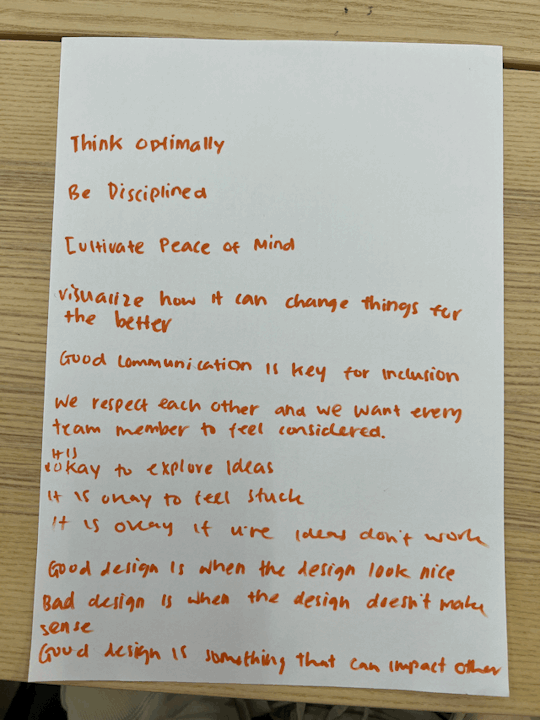 Think optimally
Be Disciplined
Cultivate Peace of Mind
visualize how it can change things for
the better
Good communication is key for inclusion
we respect each other and we want every
team member to feel considered.
It is
okay to explore Ideas
It is okay to feel stuck
It is okay if ideas don't work
Good design is when the design look nice
Bad design is when the design doesn't make
sense
Good design is something that can impact other